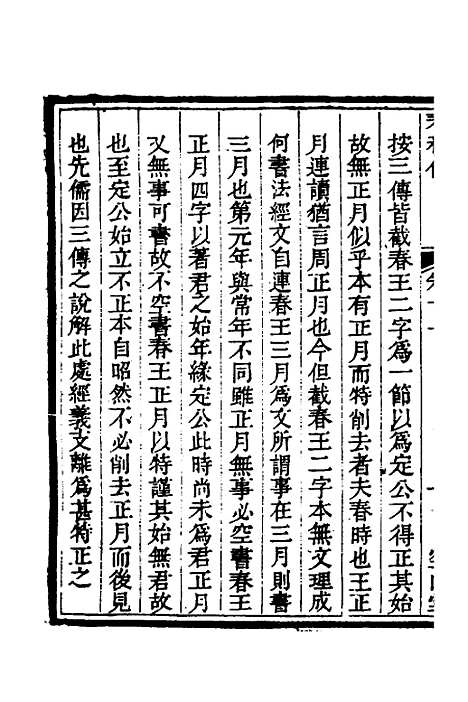 按三傳皆截春王二字爲一節以爲定公不得正其始
故無正月似乎本有正月而特削去者夫春時也王正
月連讀猶言周正月也今但截春王二字本無文理成
何書法經文自連春王三月爲文所謂事在三月則書
三月也第元年與常年不同雖正月無事必空書春王
正月四字以著君之始年緣定公此時尚未爲君正月
又無事可書故不空書春王正月以特謹其始無君故
也至定公始立不正本自昭然不必削去正月而後見
也先儒因三傳之說解此處經義支離爲甚特正之